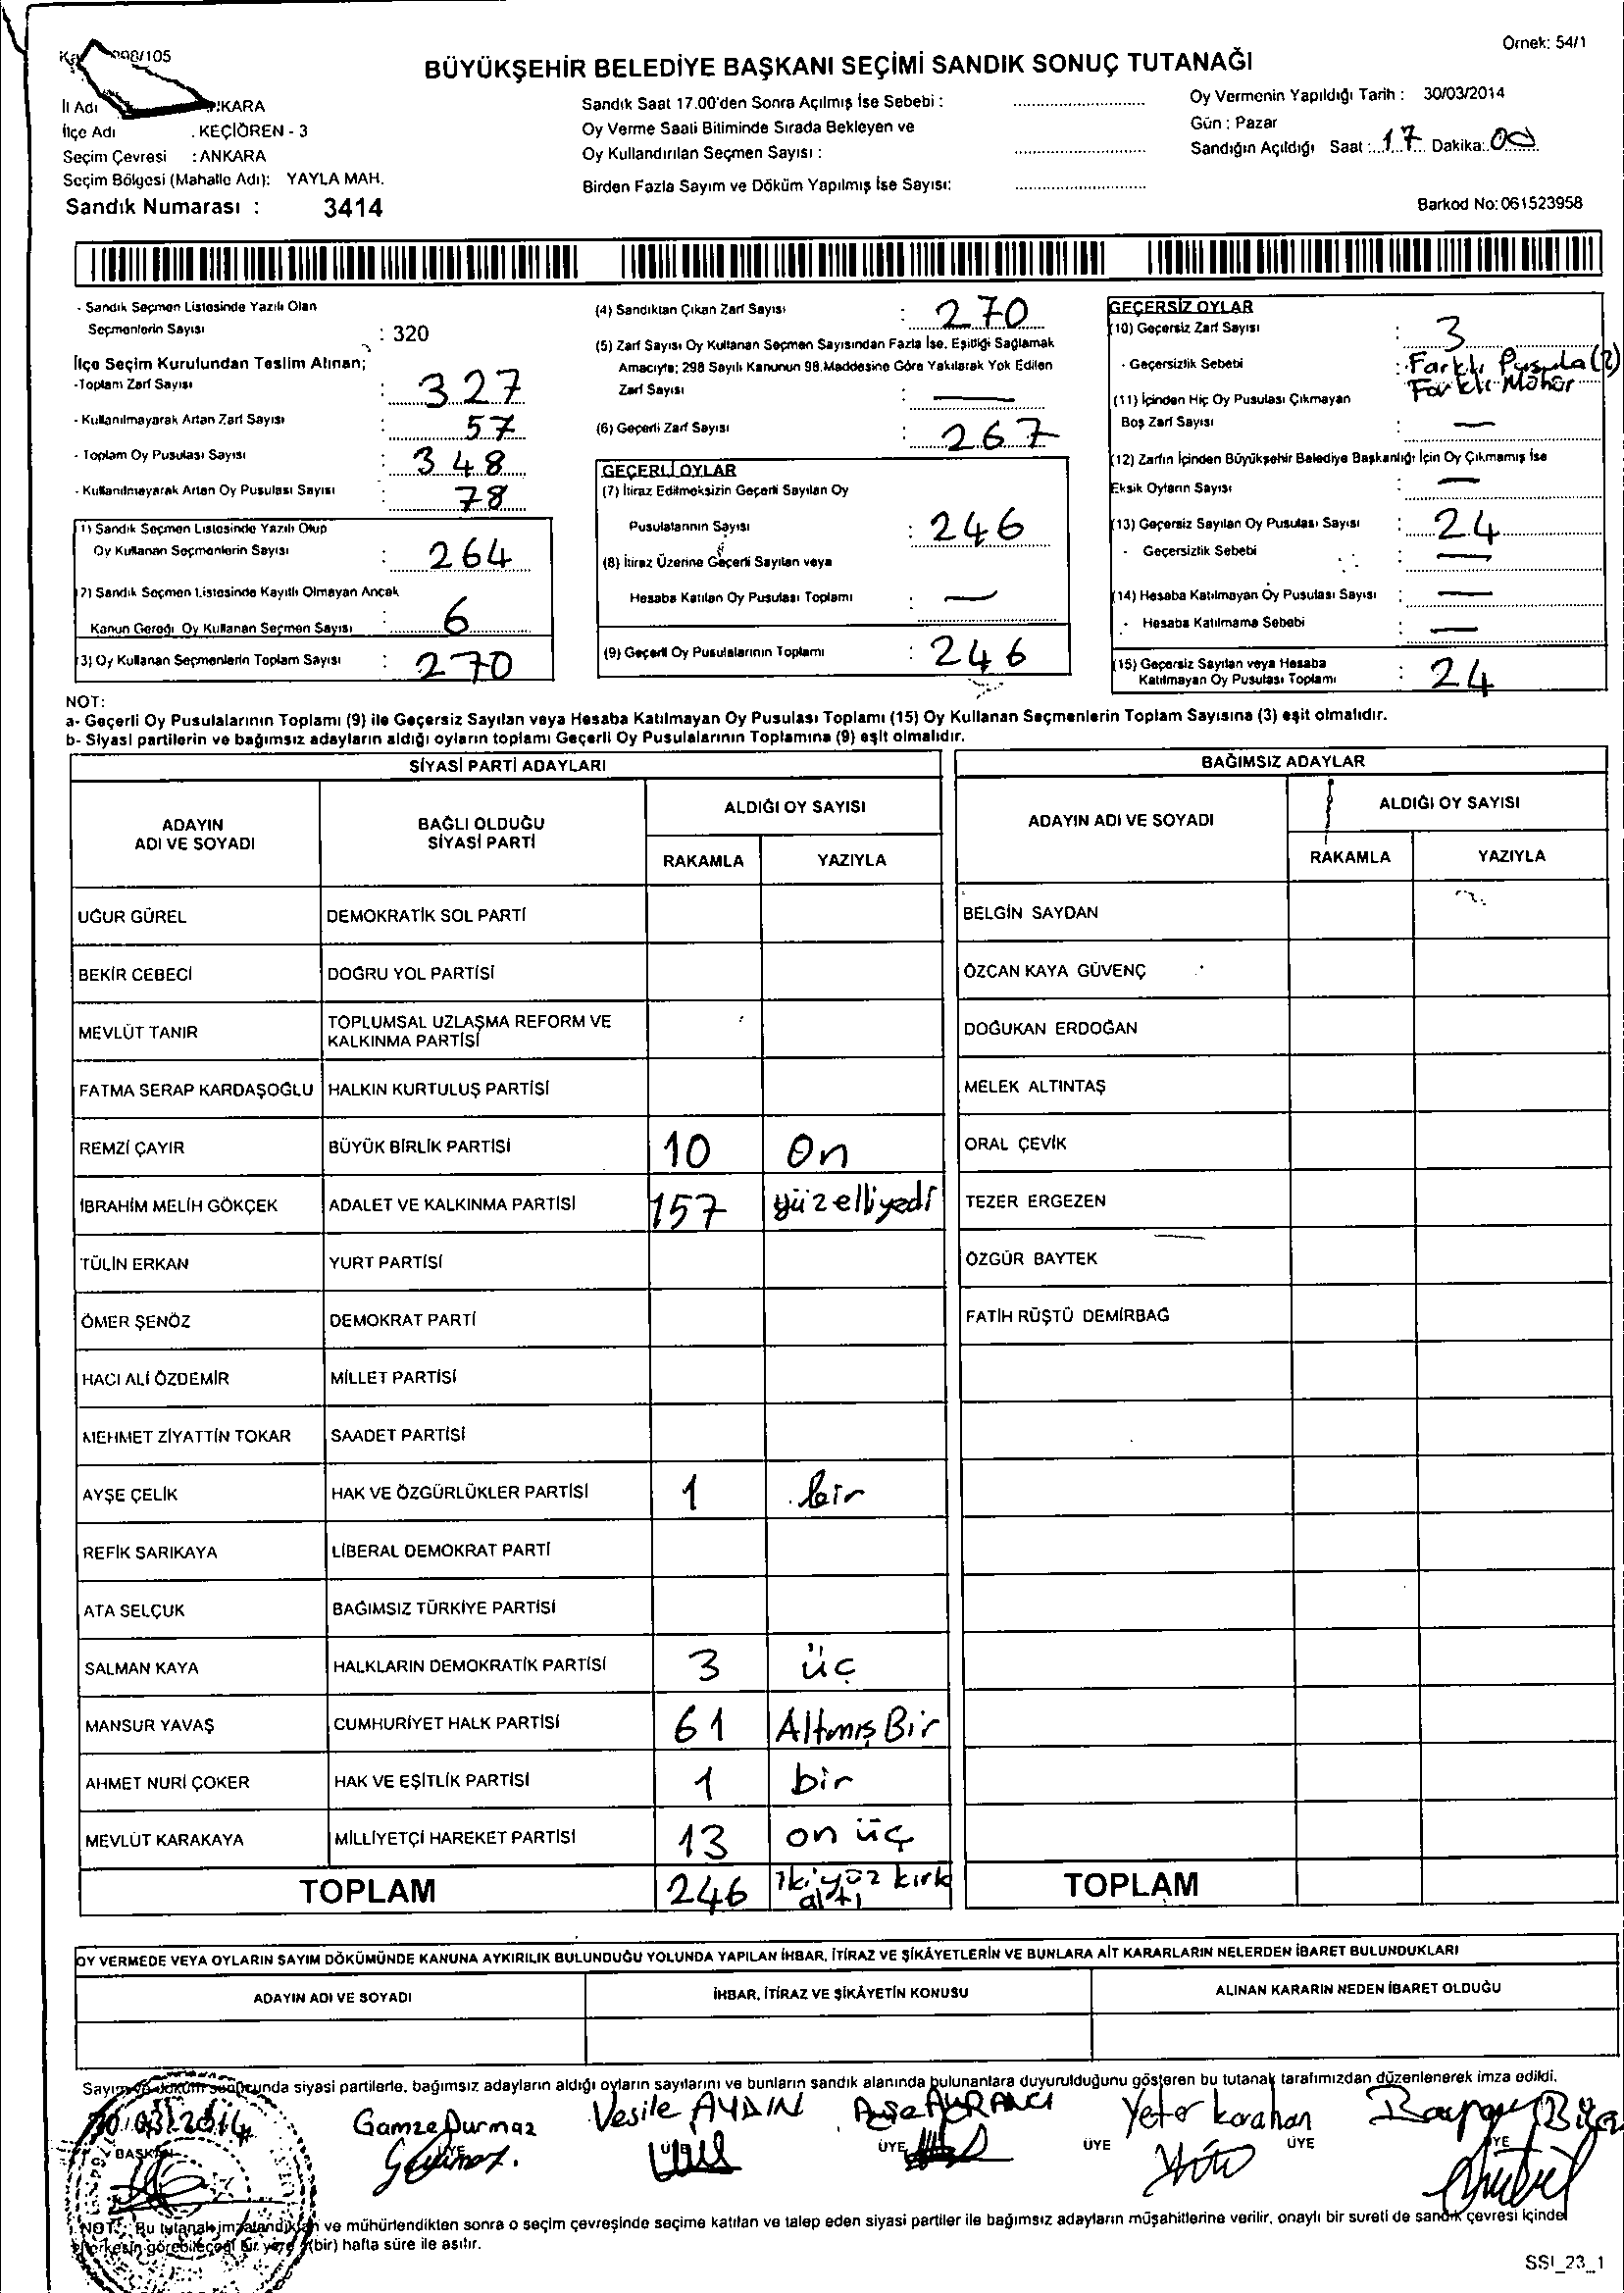 Örnek: 54/1
BÜYÜKŞEHİR BELEDİYE BAŞKANI SEÇİMİ SANDIK SONUÇ TUTANAĞI
İl Adı
İlçe Adı : KEÇİÖREN - 3
Seçim Çevresi : ANKARA
Seçim Bölgesi (Mahalle Adı): YAYLA MAH.
Sandık Numarası : 3414
Sandık Saat 17.00'den Sonra Açılmış İse Sebebi :
Oy Verme Saati Bitiminde Sırada Bekleyen ve
Oy Kullandırılan Seçmen Sayısı :
Birden Fazla Sayım ve Döküm Yapılmış İse Sayısı:
Oy Vermenin Yapıldığı Tarih : 30/03/2014
Gün : Pazar
Sandığın Açıldığı Saat : 17 Dakika: 00
Barkod No: 061523958
- Sandık Seçmen Listesinde Yazılı Olan
Seçmenlerin Sayısı : 320
İlçe Seçim Kurulundan Teslim Alınan;
-Toplam Zarf Sayısı : 327
- Kullanılmayarak Artan Zarf Sayısı : 57
- Toplam Oy Pusulası Sayısı : 348
- Kullanılmayarak Artan Oy Pusulası Sayısı : 78
(1) Sandık Seçmen Listesinde Yazılı Olup
Oy Kullanan Seçmenlerin Sayısı : 264
(2) Sandık Seçmen Listesinde Kayıtlı Olmayan Ancak
Kanun Gereği Oy Kullanan Seçmen Sayısı : 6
(3) Oy Kullanan Seçmenlerin Toplam Sayısı : 270
(4) Sandıktan Çıkan Zarf Sayısı : 270
(5) Zarf Sayısı Oy Kullanan Seçmen Sayısından Fazla İse, Eşitliği Sağlamak
Amacıyla; 298 Sayılı Kanunun 98.Maddesine Göre Yakılarak Yok Edilen
Zarf Sayısı : —
(6) Geçerli Zarf Sayısı : 267
GEÇERLİ OYLAR
(7) İtiraz Edilmeksizin Geçerli Sayılan Oy
Pusulalarının Sayısı : 246
(8) İtiraz Üzerine Geçerli Sayılan veya
Hesaba Katılan Oy Pusulası Toplamı : —
(9) Geçerli Oy Pusulalarının Toplamı : 246
GEÇERSİZ OYLAR
(10) Geçersiz Zarf Sayısı : 3
- Geçersizlik Sebebi : Farklı Pusula (2)
Farklı Mühür
(11) İçinden Hiç Oy Pusulası Çıkmayan
Boş Zarf Sayısı : —
(12) Zarfın İçinden Büyükşehir Belediye Başkanlığı İçin Oy Çıkmamış İse
Eksik Oyların Sayısı : —
(13) Geçersiz Sayılan Oy Pusulası Sayısı : 24
- Geçersizlik Sebebi : —
(14) Hesaba Katılmayan Oy Pusulası Sayısı : —
- Hesaba Katılmama Sebebi : —
(15) Geçersiz Sayılan veya Hesaba
Katılmayan Oy Pusulası Toplamı : 24
NOT:
a- Geçerli Oy Pusulalarının Toplamı (9) ile Geçersiz Sayılan veya Hesaba Katılmayan Oy Pusulası Toplamı (15) Oy Kullanan Seçmenlerin Toplam Sayısına (3) eşit olmalıdır.
b- Siyasi partilerin ve bağımsız adayların aldığı oyların toplamı Geçerli Oy Pusulalarının Toplamına (9) eşit olmalıdır.
SİYASİ PARTİ ADAYLARI
ADAYIN ADI VE SOYADI
BAĞLI OLDUĞU SİYASİ PARTİ
ALDIĞI OY SAYISI
RAKAMLA YAZIYLA
UĞUR GÜREL DEMOKRATİK SOL PARTİ
BEKİR CEBECİ DOĞRU YOL PARTİSİ
MEVLÜT TANIR TOPLUMSAL UZLAŞMA REFORM VE
KALKINMA PARTİSİ
FATMA SERAP KARDAŞOĞLU HALKIN KURTULUŞ PARTİSİ
REMZİ ÇAYIR BÜYÜK BİRLİK PARTİSİ 10 On
İBRAHİM MELİH GÖKÇEK ADALET VE KALKINMA PARTİSİ 157 yüzelliyedi
TÜLİN ERKAN YURT PARTİSİ
ÖMER ŞENÖZ DEMOKRAT PARTİ
HACI ALİ ÖZDEMİR MİLLET PARTİSİ
MEHMET ZİYATTİN TOKAR SAADET PARTİSİ
AYŞE ÇELİK HAK VE ÖZGÜRLÜKLER PARTİSİ 1 bir
REFİK SARIKAYA LİBERAL DEMOKRAT PARTİ
ATA SELÇUK BAĞIMSIZ TÜRKİYE PARTİSİ
SALMAN KAYA HALKLARIN DEMOKRATİK PARTİSİ 3 üç
MANSUR YAVAŞ CUMHURİYET HALK PARTİSİ 61 Altmış Bir
AHMET NURİ ÇOKER HAK VE EŞİTLİK PARTİSİ 1 bir
MEVLÜT KARAKAYA MİLLİYETÇİ HAREKET PARTİSİ 13 on üç
TOPLAM 246 ikiyüz kırk
altı
BAĞIMSIZ ADAYLAR
ADAYIN ADI VE SOYADI
ALDIĞI OY SAYISI
RAKAMLA YAZIYLA
BELGİN SAYDAN
ÖZCAN KAYA GÜVENÇ
DOĞUKAN ERDOĞAN
MELEK ALTINTAŞ
ORAL ÇEVİK
TEZER ERGEZEN
ÖZGÜR BAYTEK
FATİH RÜŞTÜ DEMİRBAĞ
TOPLAM
OY VERMEDE VEYA OYLARIN SAYIM DÖKÜMÜNDE KANUNA AYKIRILIK BULUNDUĞU YOLUNDA YAPILAN İHBAR, İTİRAZ VE ŞİKÂYETLERİN VE BUNLARA AİT KARARLARIN NELERDEN İBARET BULUNDUKLARI
ADAYIN ADI VE SOYADI İHBAR, İTİRAZ VE ŞİKÂYETİN KONUSU ALINAN KARARIN NEDEN İBARET OLDUĞU
Sayım ve döküm sonucunda siyasi partilerle, bağımsız adayların aldığı oyların sayılarını ve bunların sandık alanında bulunanlara duyurulduğunu gösteren bu tutanak tarafımızdan düzenlenerek imza edildi.
30.03.2014 Gamze Durmaz Vesile AYDIN Ayşe AYRANCI Yeter karahan
BAŞKAN ÜYE ÜYE ÜYE ÜYE ÜYE ÜYE
NOT: Bu tutanak imzalandıktan ve mühürlendikten sonra o seçim çevresinde seçime katılan ve talep eden siyasi partiler ile bağımsız adayların müşahitlerine verilir, onaylı bir sureti de sandık çevresi içinde
herkesin görebileceği bir yere (bir) hafta süre ile asılır.
SSI_23_1